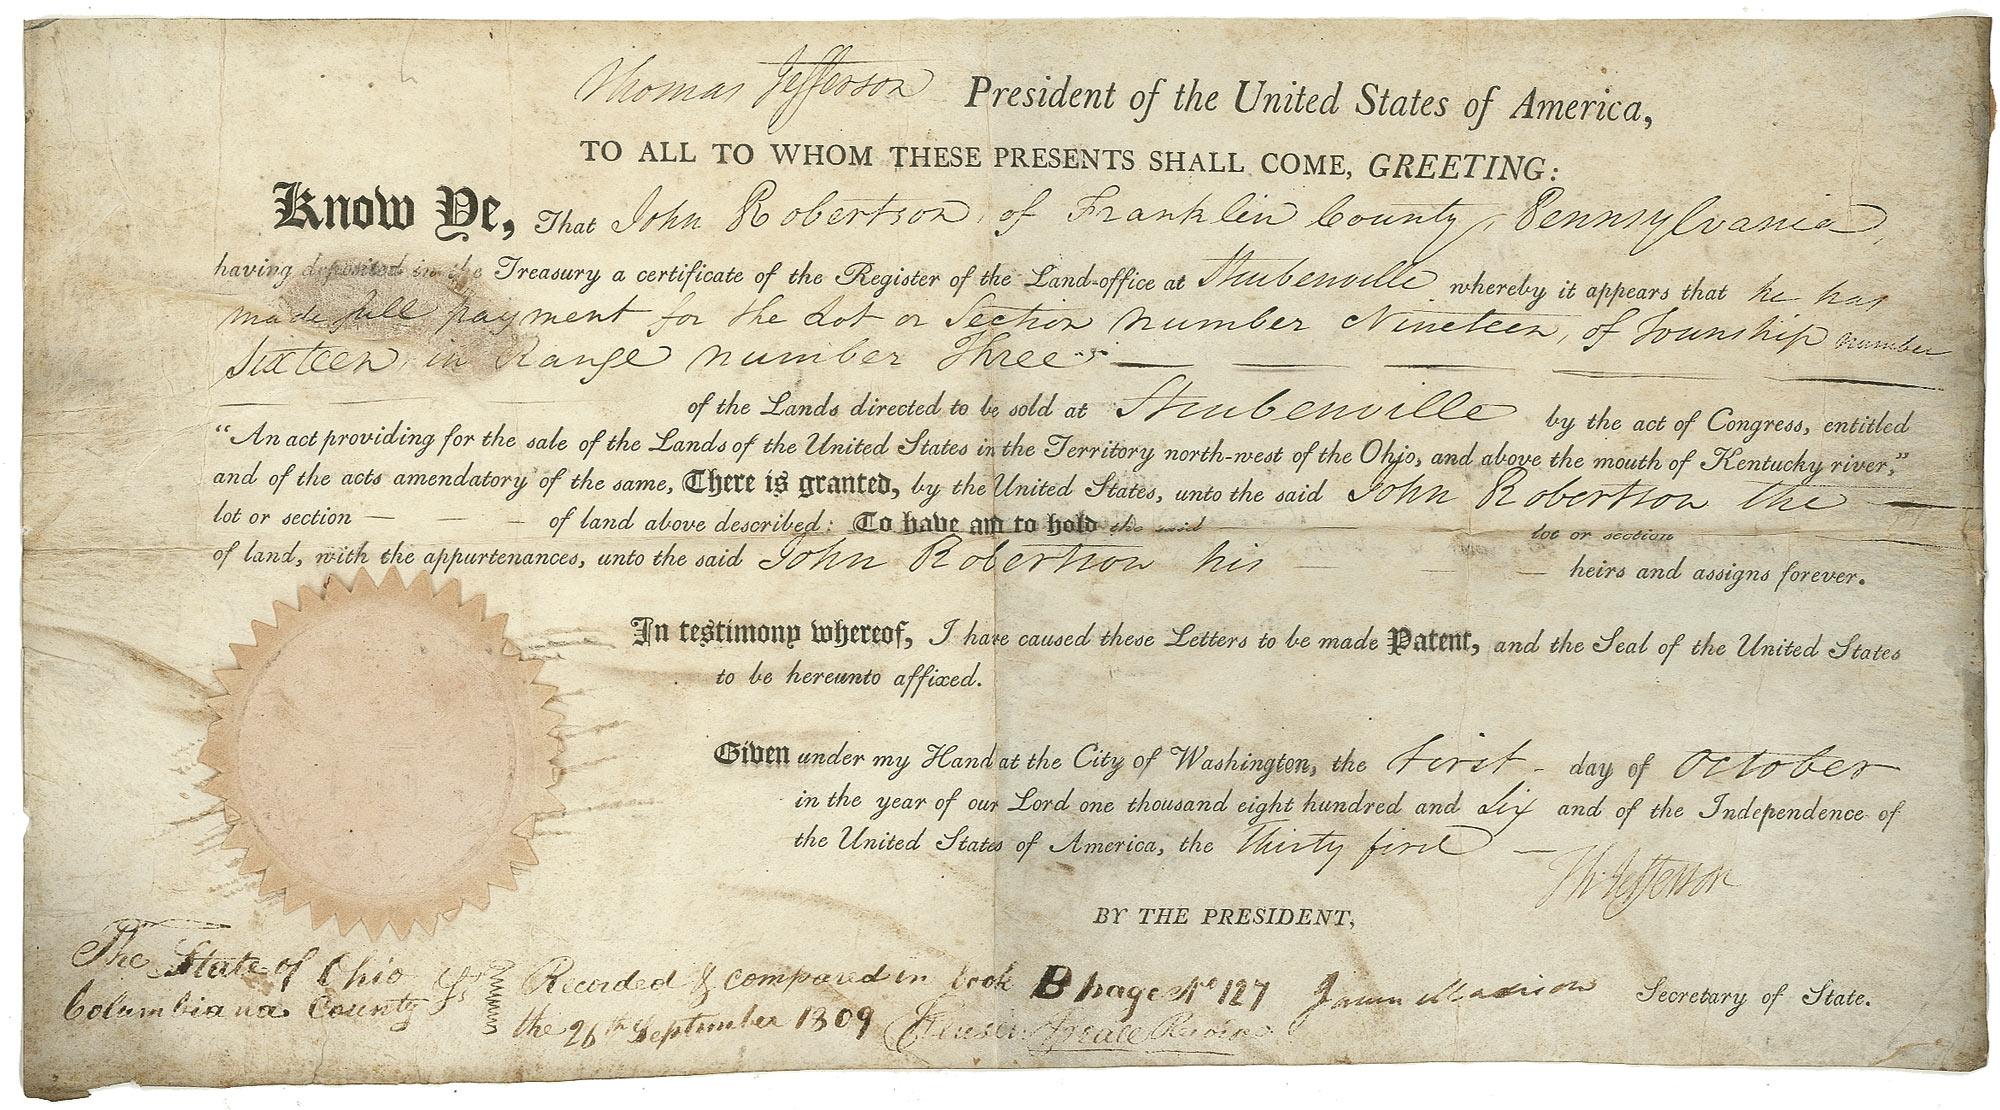 Thomas Jefferson President of the United States of America,
TO ALL TO WHOM THESE PRESENTS SHALL COME, GREETING:
Know Ye, That John Robertson, of Franklin County, Pennsylvania,
having deposited in the Treasury a certificate of the Register of the Land-office at Steubenville whereby it appears that he has
made full payment for the Lot or Section number Nineteen, of Township number
Sixteen, in Range number Three
of the Lands directed to be sold at Steubenville by the act of Congress, entitled
"An act providing for the sale of the Lands of the United States in the Territory north-west of the Ohio, and above the mouth of Kentucky river,"
and of the acts amendatory of the same, There is granted, by the United States, unto the said John Robertson the
lot or section of land above described: To have and to hold the said lot or section
of land, with the appurtenances, unto the said John Robertson his heirs and assigns forever.
In testimony whereof, I have caused these Letters to be made Patent, and the Seal of the United States
to be hereunto affixed.
Given under my Hand at the City of Washington, the first day of October
in the year of our Lord one thousand eight hundred and Six and of the Independence of
the United States of America, the Thirty first
Th: Jefferson
BY THE PRESIDENT,
James Madison Secretary of State.
The State of Ohio
Columbiana County Ss
Recorded & compared in book B page No 127
the 26th September 1809